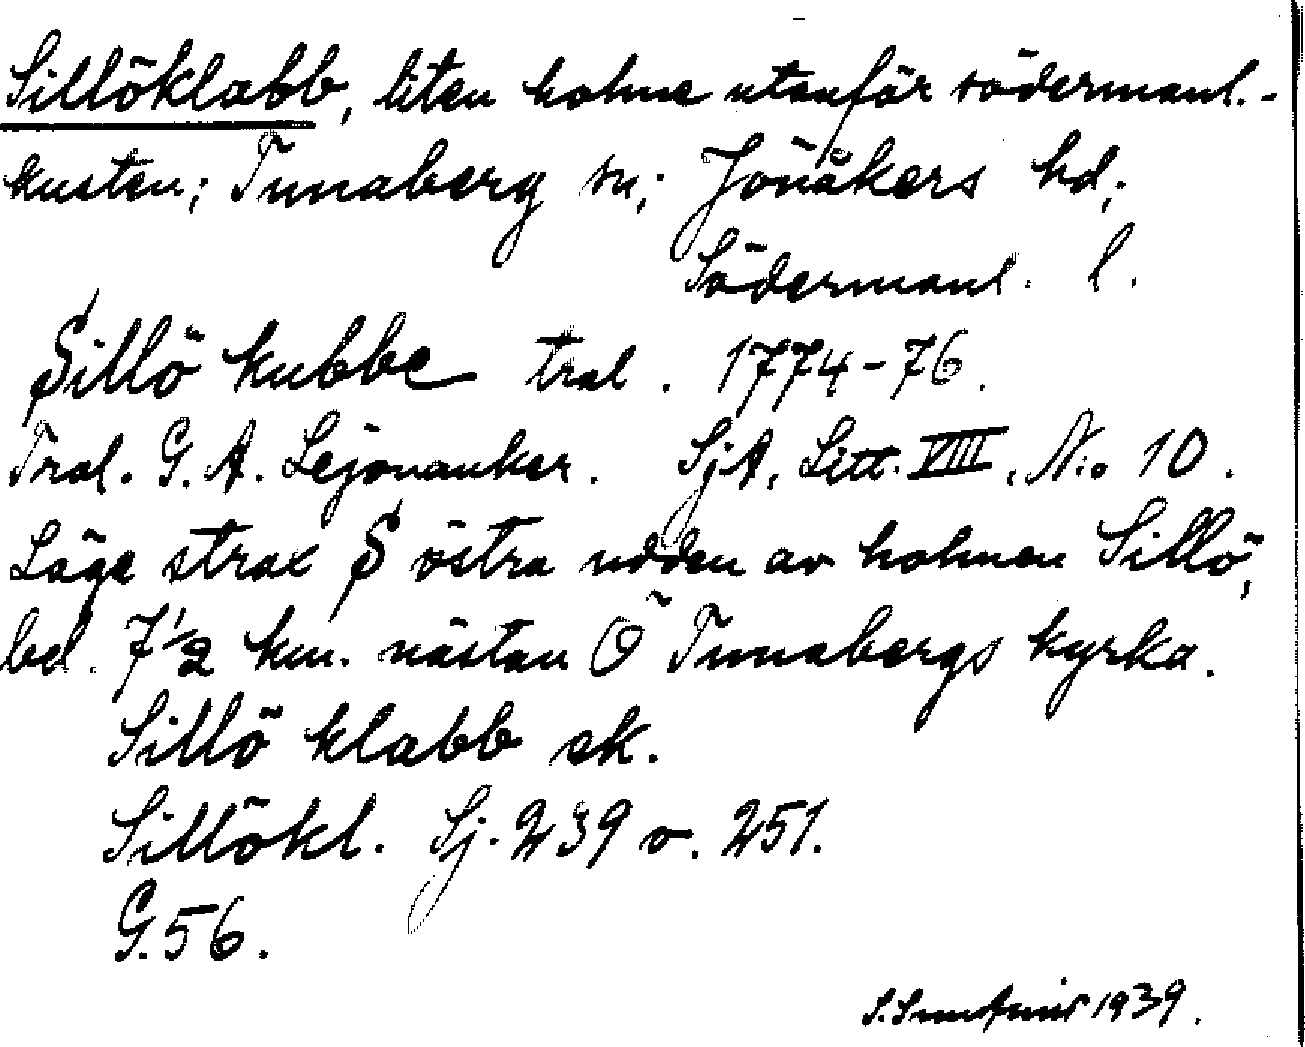 Sillöklabb, liten holme utanför södermanl.-
kusten; Tunaberg sn; Jönåkers hd;
Södermanl. l.
Sillö kubbe tral. 1774-76.
Tral. G. A. Lejonanker. SjA, Litt. VIII, No 10.
Läge strax S östra udden av holmen Sillö,
bel. 7 1/2 km. nästan Ö Tunabergs kyrka.
Sillö klabb ek.
Sillökl. Sj. 239 o. 251.
G. 56.
1939.